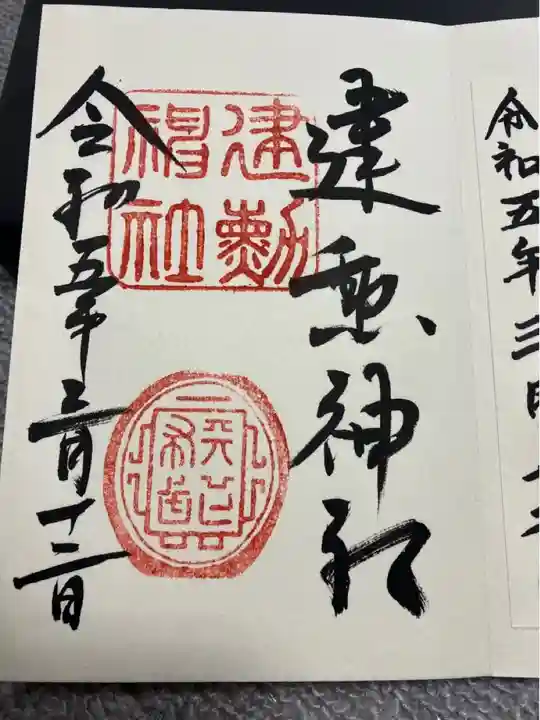 令和五年三月十二
建勲神社
建勲
神社
天下布武
令和五年三月十二日